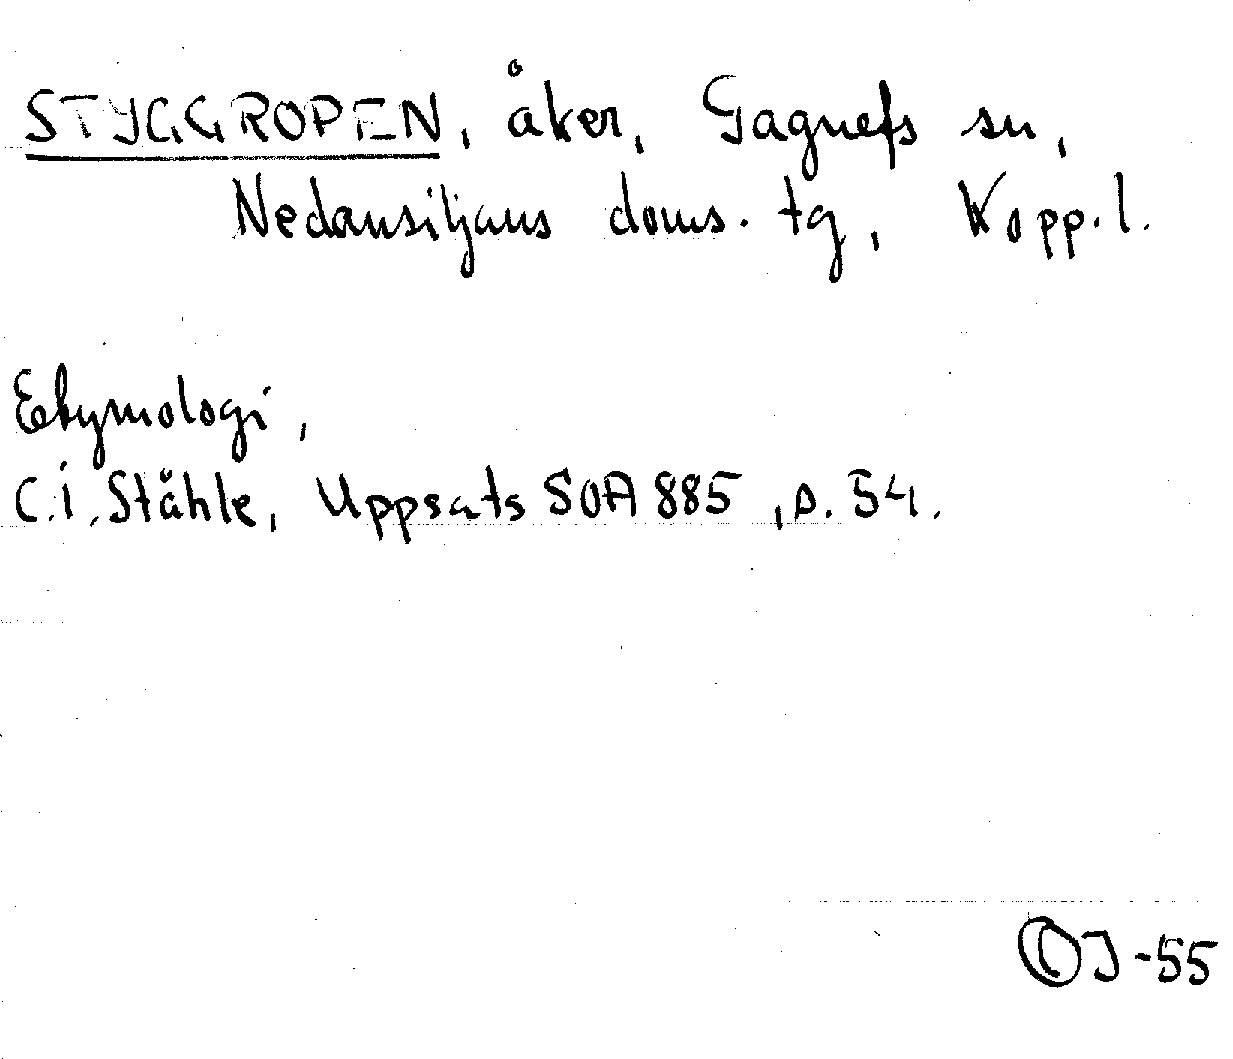 STYGGROPEN, åker, Gagnefs sn,
Nedansiljans doms. tg, Kopp. l.
Etymologi,
C.I. Ståhle, Uppsats SOA 885, s. 54.
J-55